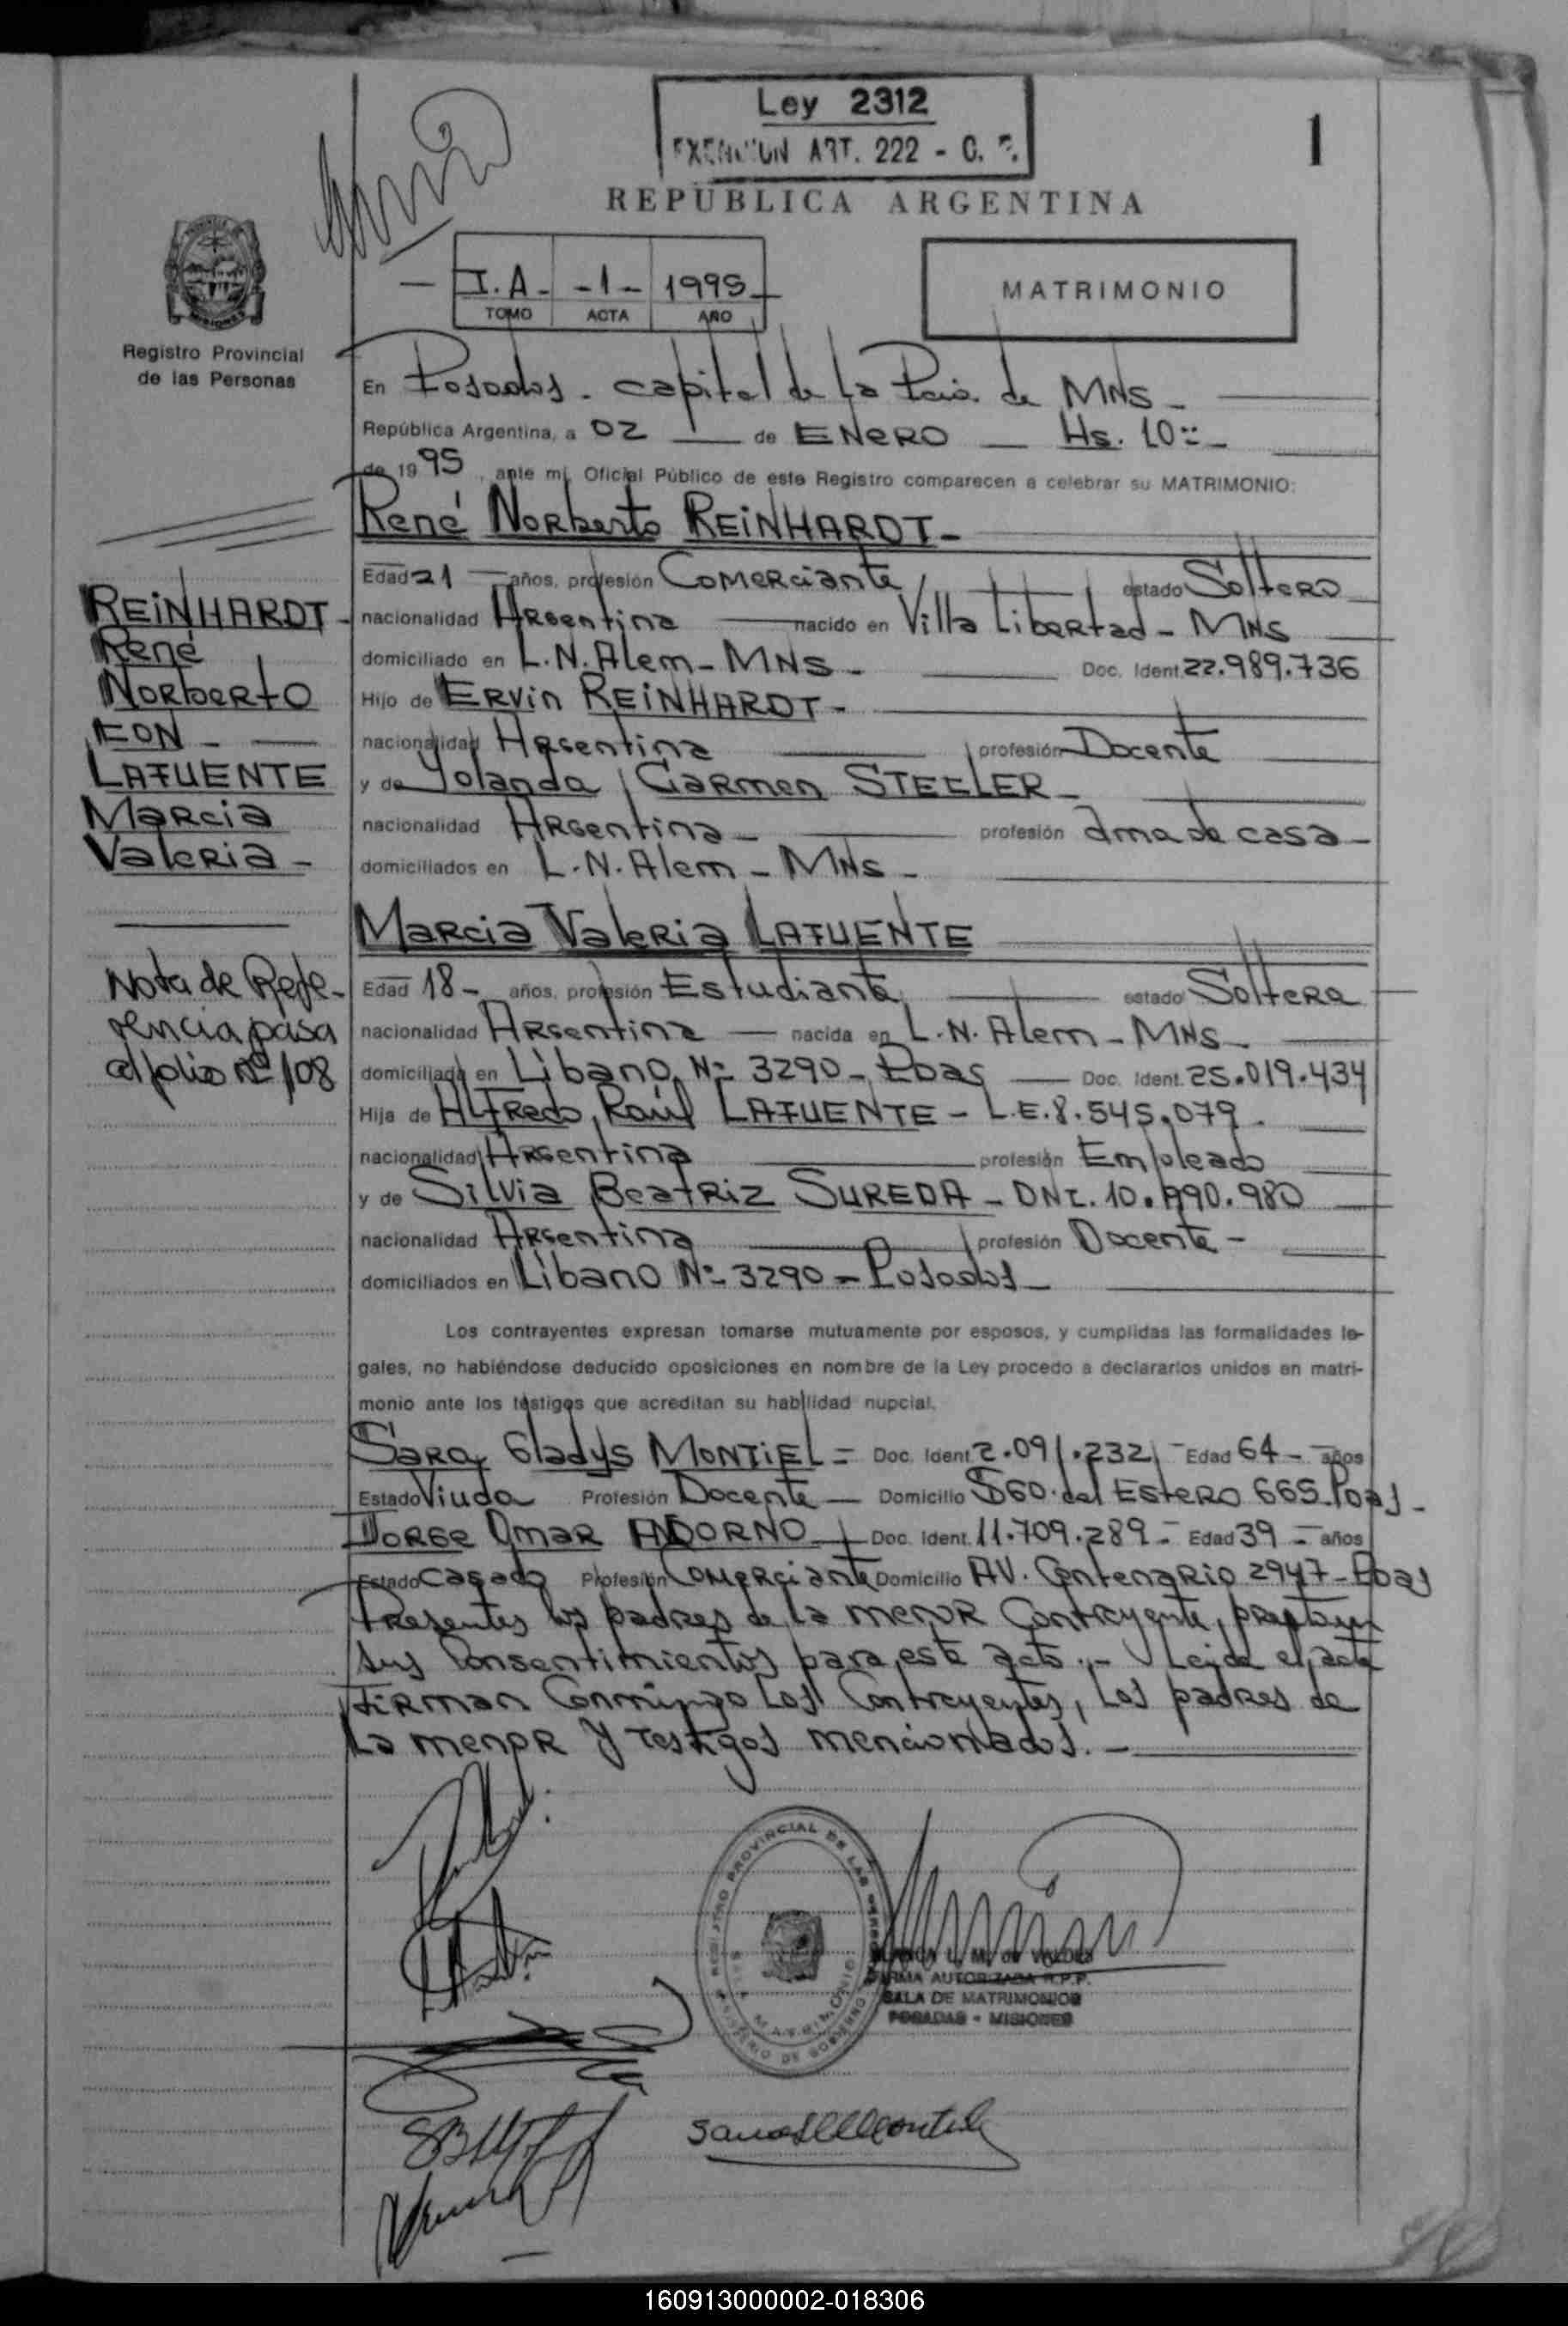 Ley 2312
EXENCION ART. 222 - C. F.
1
REPUBLICA ARGENTINA
I.A - -1- 1995
TOMO ACTA AÑO
MATRIMONIO
MISIONES
Registro Provincial
de las Personas
En Posadas. capital de La Pcia. de MNS -
República Argentina, a 02 de ENERO Hs. 10:: -
de 1995, ante mí, Oficial Público de este Registro comparecen a celebrar su MATRIMONIO:
René Norberto REINHARDT -
Edad 21 años, profesión Comerciante estado Soltero
nacionalidad Argentina nacido en Villa Libertad - MNS
domiciliado en L.N. Alem - MNS - Doc. Ident. 22.989.736
Hijo de Ervin REINHARDT -
nacionalidad Argentina profesión Docente
y de Yolanda Carmen STEELER -
nacionalidad Argentina - profesión ama de casa -
domiciliados en L.N. Alem - MNS -
REINHARDT -
René
Norberto
CON -
LAFUENTE
Marcia
Valeria -
Marcia Valeria LAFUENTE
Edad 18 - años, profesión Estudiante estado Soltera
nacionalidad Argentina - nacida en L.N. Alem - MNS -
domiciliada en Libano Nº 3290 - Pdas Doc. Ident. 25.019.434
Hija de Alfredo Raúl LAFUENTE - L.E. 8.545.079.
nacionalidad Argentina profesión Empleado
y de Silvia Beatriz SUREDA - DNI. 10.990.980
nacionalidad Argentina profesión Docente -
domiciliados en Libano Nº 3290 - Posadas -
Nota de Refe-
rencia pasa
al folio nº 108
Los contrayentes expresan tomarse mutuamente por esposos, y cumplidas las formalidades le-
gales, no habiéndose deducido oposiciones en nombre de la Ley procedo a declararlos unidos en matri-
monio ante los testigos que acreditan su habilidad nupcial.
Sara Gladys MONTIEL = Doc. Ident. 2.091.232 - Edad 64 - años
Estado Viuda Profesión Docente - Domicilio Sgo. del Estero 665 Pdas -
Jorge Omar ADORNO - Doc. Ident. 11.709.289 - Edad 39 - años
Estado Casado Profesión Comerciante Domicilio AV. Centenario 2947 - Pdas
Presentes los padres de la menor Contrayente, prestan
sus Consentimientos para este acto.- Leida el acta
Firman Conmigo Los Contrayentes, Los padres de
La menor y Testigos mencionados. -
REGISTRO PROVINCIAL DE LAS PERSONAS
MINISTERIO DE GOBIERNO
FIRMA AUTORIZADA R.P.P.
SALA DE MATRIMONIOS
POSADAS - MISIONES
160913000002-018306